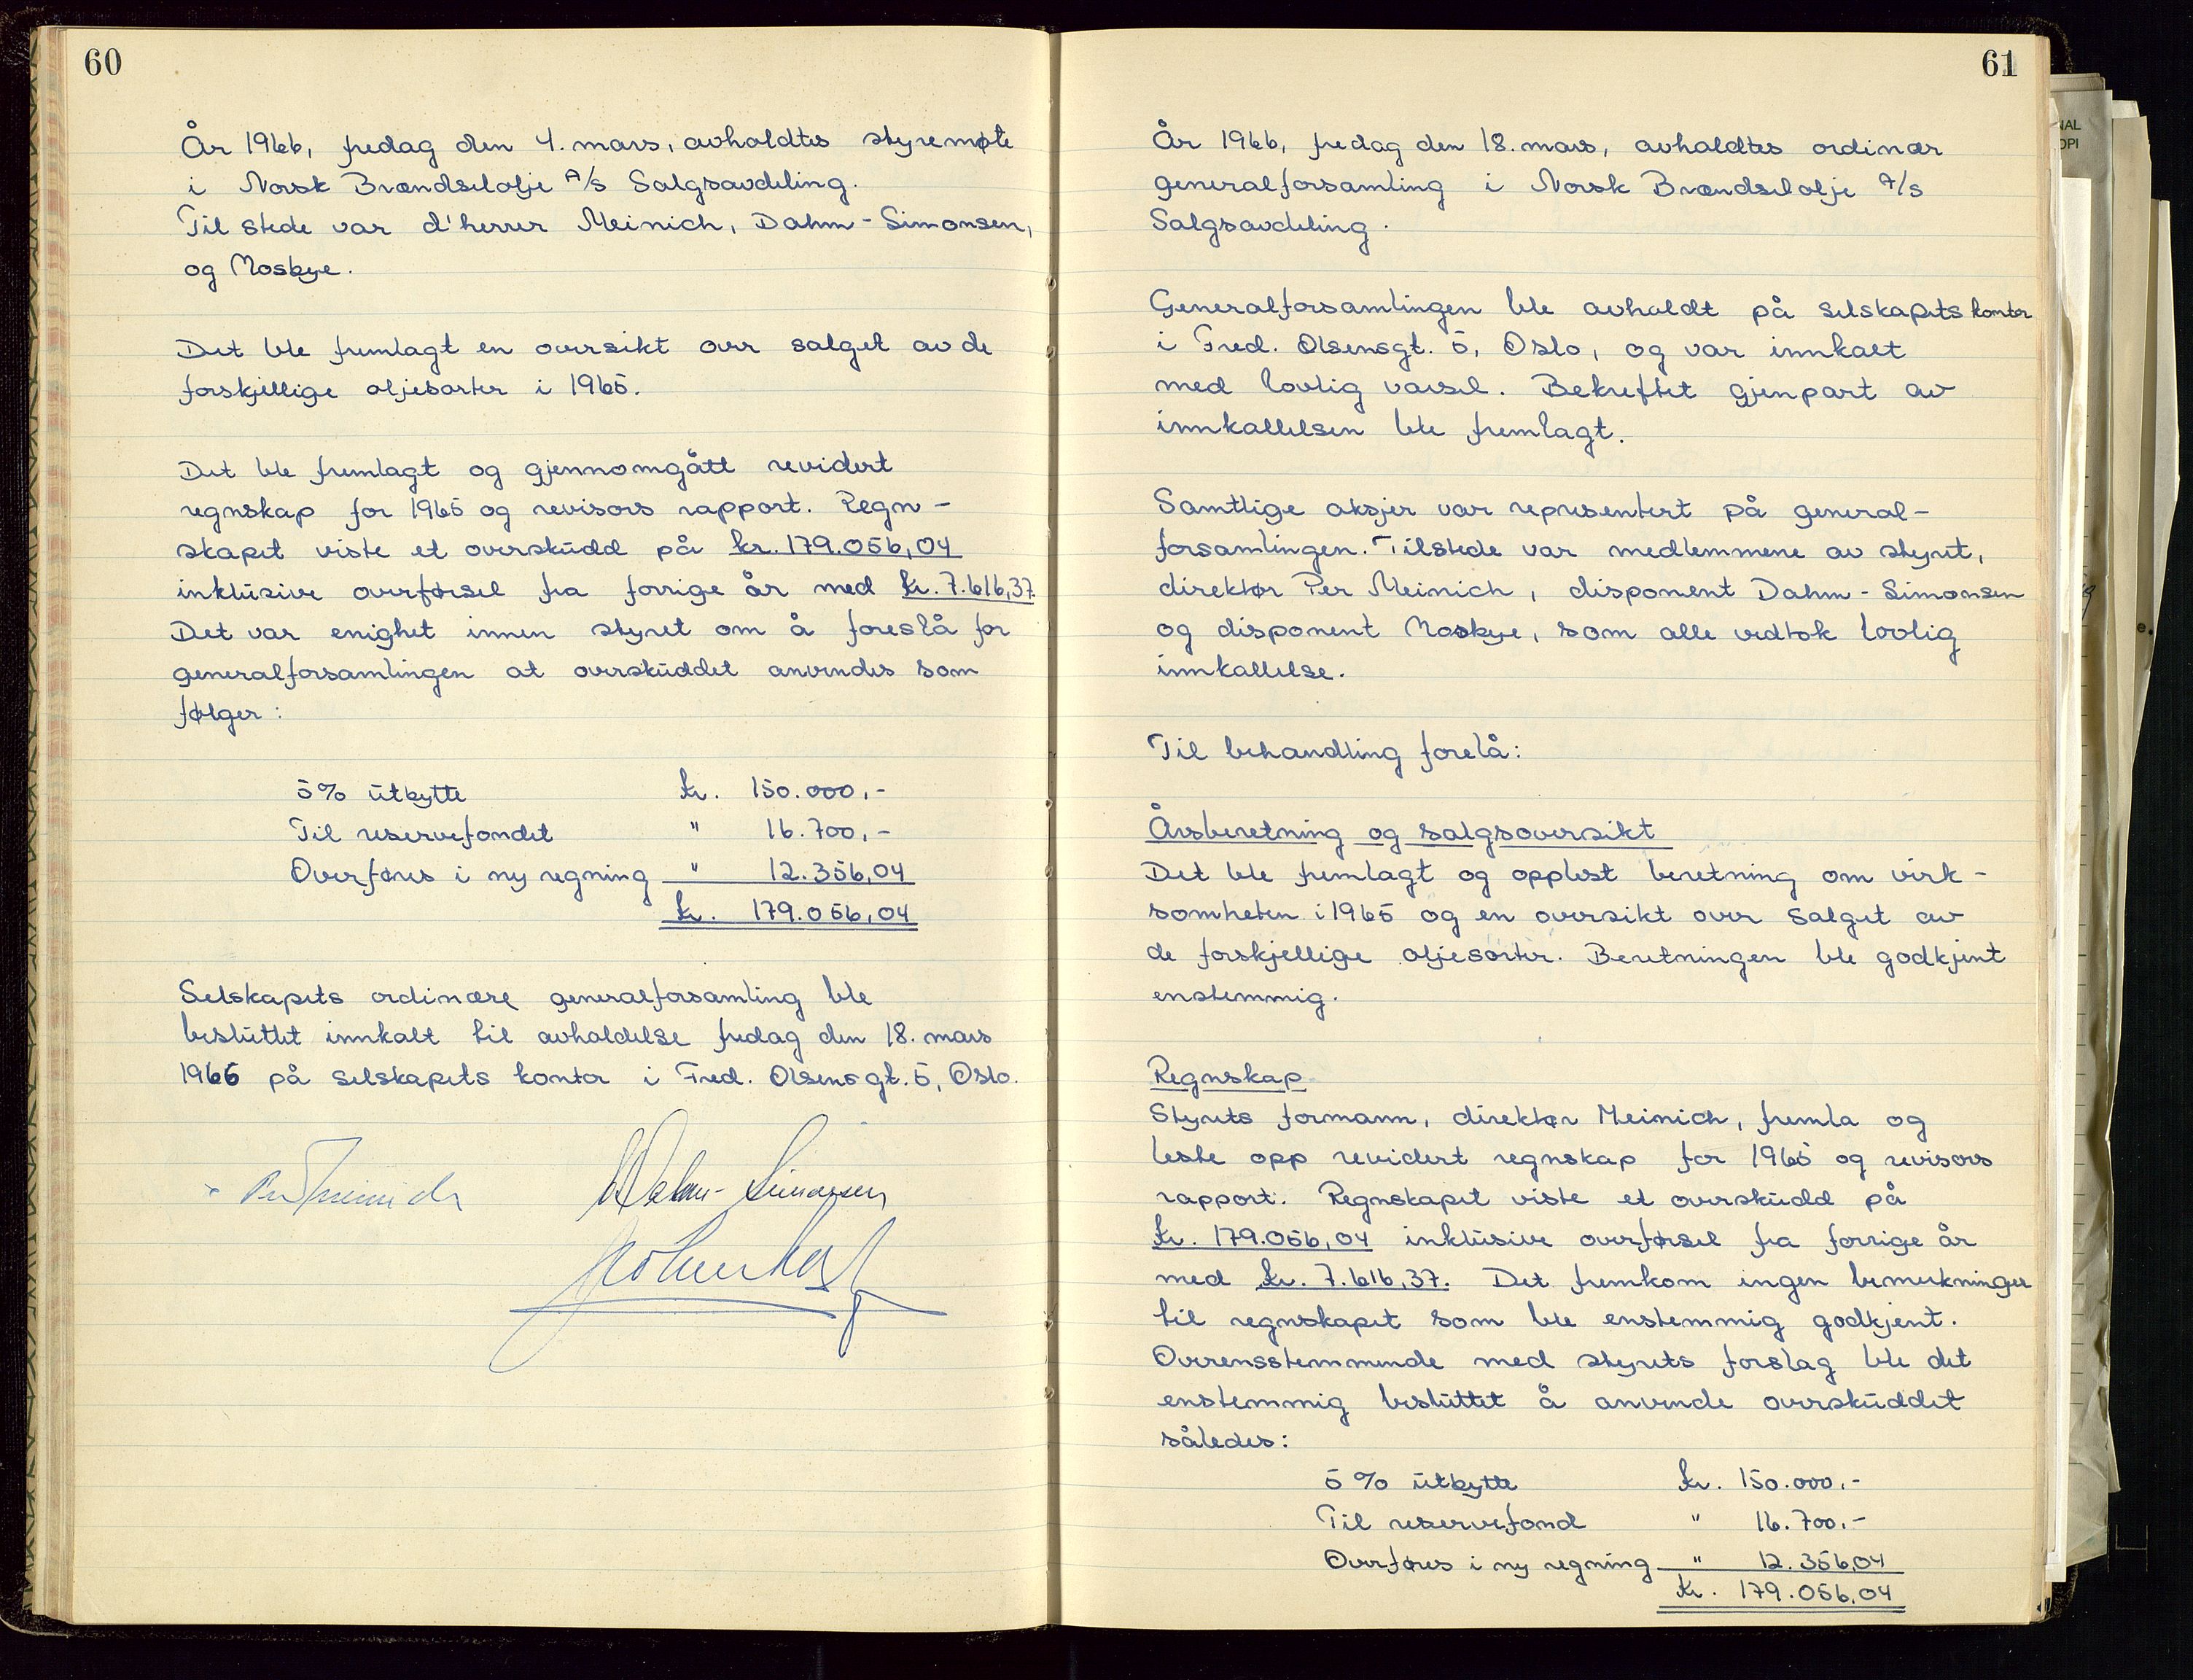 60
År 1966, fredag den 4. mars, avholdtes styremøte
i Norsk Brændselolje A/S Salgsavdeling.
Til stede var d'herrer Meinich, Dahm-Simonsen,
og Moskye.
Det ble fremlagt en oversikt over salget av de
forskjellige oljesorter i 1965.
Det ble fremlagt og gjennomgått revidert
regnskap for 1965 og revisors rapport. Regn-
skapet viste et overskudd på kr. 179.056,04
inklusive overførsel fra forrige år med kr. 7.616,37.
Det var enighet innen styret om å foreslå for
generalforsamlingen at overskuddet anvendes som
følger:
5% utbytte kr. 150.000,-
Til reservefondet " 16.700,-
Overføres i ny regning " 12.356,04
kr. 179.056,04
Selskapets ordinære generalforsamling ble
besluttet innkalt til avholdelse fredag den 18. mars
1966 på selskapets kontor i Fred. Olsensgt. 5, Oslo.
Per Meinich
Dahm-Simonsen
61
År 1966, fredag den 18. mars, avholdtes ordinær
generalforsamling i Norsk Brændselolje A/S
Salgsavdeling.
Generalforsamlingen ble avholdt på selskapets kontor
i Fred. Olsensgt. 5, Oslo, og var innkalt
med lovlig varsel. Bekreftet gjenpart av
innkallelsen ble fremlagt.
Samtlige aksjer var representert på general-
forsamlingen. Tilstede var medlemmene av styret,
direktør Per Meinich, disponent Dahm-Simonsen
og disponent Moskye, som alle vedtok lovlig
innkallelse.
Til behandling forelå:
Årsberetning og salgsoversikt
Det ble fremlagt og opplest beretning om virk-
somheten i 1965 og en oversikt over salget av
de forskjellige oljesorter. Beretningen ble godkjent
enstemmig.
Regnskap
Styrets formann, direktør Meinich, fremla og
leste opp revidert regnskap for 1965 og revisors
rapport. Regnskapet viste et overskudd på
kr. 179.056,04 inklusive overførsel fra forrige år
med kr. 7.616,37. Det fremkom ingen bemerkninger
til regnskapet som ble enstemmig godkjent.
Overensstemmende med styrets forslag ble det
enstemmig besluttet å anvende overskuddet
således:
5% utbytte kr. 150.000,-
Til reservefond " 16.700,-
Overføres i ny regning " 12.356,04
kr. 179.056,04